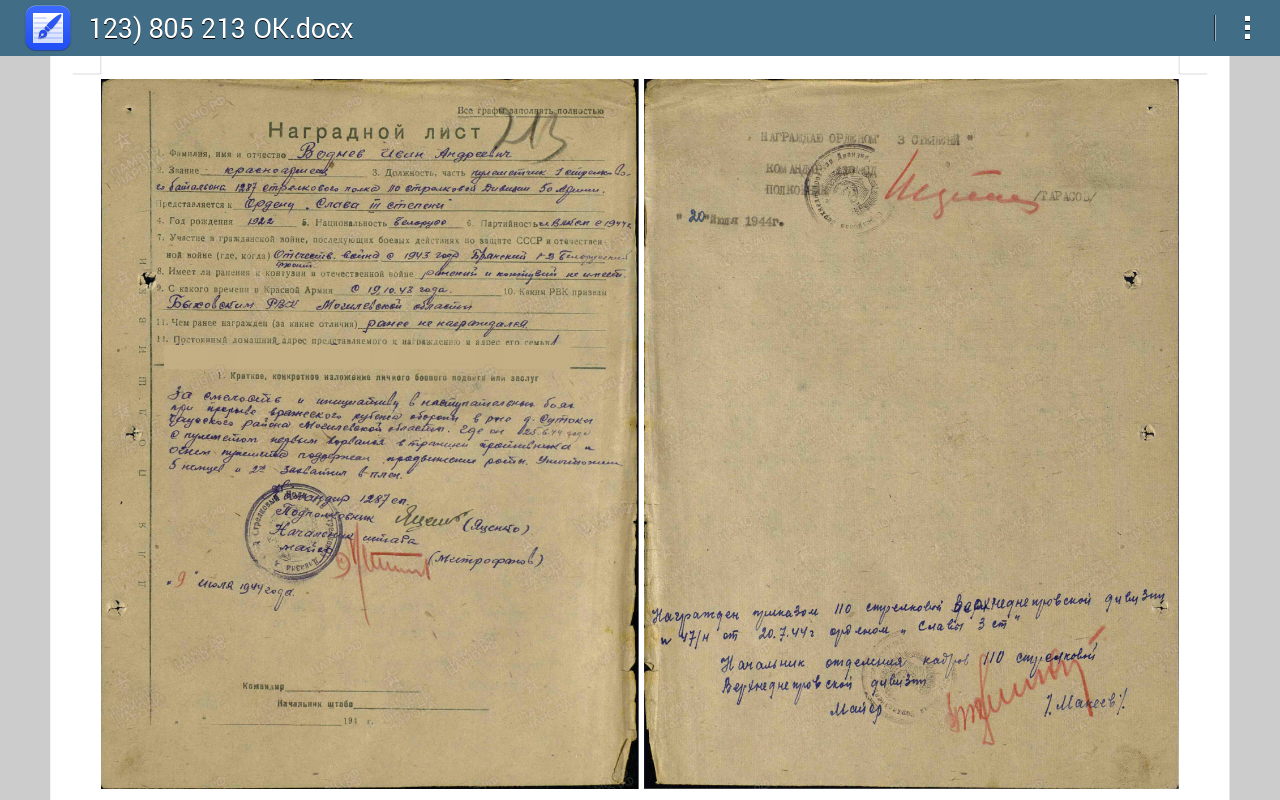 123) 805 213 OK.docx
Все графы заполнять полностью
213
Наградной лист
1. Фамилия, имя и отчество Воднев Иван Андреевич
2. Звание красноармеец 3. Должность, часть пулеметчик 1 стрелково-
го батальона 1287 стрелкового полка 110 стрелковой Дивизии 50 Армии.
Представляется к Ордену "Слава III степени"
4. Год рождения 1922 5. Национальность белорус 6. Партийность чл ВЛКСМ с 1944г
7. Участие в гражданской войне, последующих боевых действиях по защите СССР и отечествен
ной войне (где, когда) Отечеств. война с 1943 года Брянский 1-2 Белорусский
фронт.
8. Имеет ли ранения и контузии в отечественной войне ранений и контузий не имеет.
9. С какого времени в Красной Армии С 19.10.43 года. 10. Каким РВК призван
Быховским РВК Могилевской области
11. Чем ранее награжден (за какие отличия) ранее не награждался
11. Постоянный домашний адрес представляемого к награждению и адрес его семьи
1. Краткое, конкретное изложение личного боевого подвига или заслуг
За смелость и инициативу в наступательных боях
при прорыве вражеского рубежа обороны в р-не д. Сутоки
района Могилевской области. Где он 25.6.44 года
с пулеметом первым ворвался в траншеи противника и
огнем пулемета поддержал продвижение роты. Уничтожил
5 немцев и 2х захватил в плен.
Командир 1287 сп
Подполковник (Яценко)
Начальник штаба
майор (Митрофанов)
"9" июля 1944 года.
Командир
Начальник штаба
" " 194 г.
НАГРАЖДАЮ ОРДЕНОМ " 3 СТЕПЕНИ "
КОМАНДИР
ПОДКОВНИК /ТАРАСОВ/
"20" Июля 1944г.
Награжден приказом 110 стрелковой Верхнеднепровской дивизии
№ 47/н от 20.7.44г орденом "Славы 3 ст"
Начальник отделения кадров 110 стрелковой
Верхнеднепровской дивизии
Майор /Макеев/.